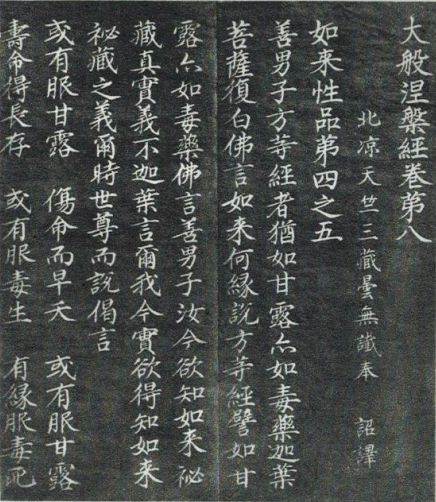 大般涅槃經卷第八
北凉天竺三藏曇無讖奉　詔譯
如来性品第四之五
善男子方䓁經者猶如甘露亦如毒藥迦葉
菩薩復白佛言如来何縁說方䓁經譬如甘
露亦如毒藥佛言善男子汝今欲知如来祕
藏真實義不迦葉言爾我今實欲得知如来
祕藏之義爾時世尊而說偈言
或有服甘露　傷命而早夭　或有服甘露
壽命得長存　或有服毒生　有縁服毒死